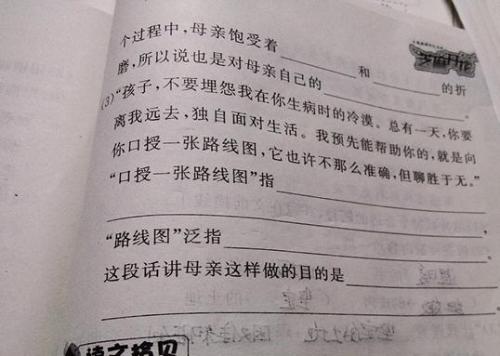 个过程中，母亲饱受着________和________的折
磨，所以说也是对母亲自己的________。
(3)“孩子，不要埋怨我在你生病时的冷漠。总有一天，你要
离我远去，独自面对生活。我预先能帮助你的，就是向
你口授一张路线图，它也许不那么准确，但聊胜于无。”
“口授一张路线图”指________
________
“路线图”泛指________
这段话讲母亲这样做的目的是________
________